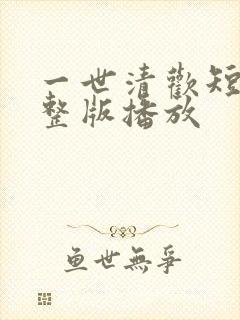 一世清歡短
整版播放
鱼世無爭